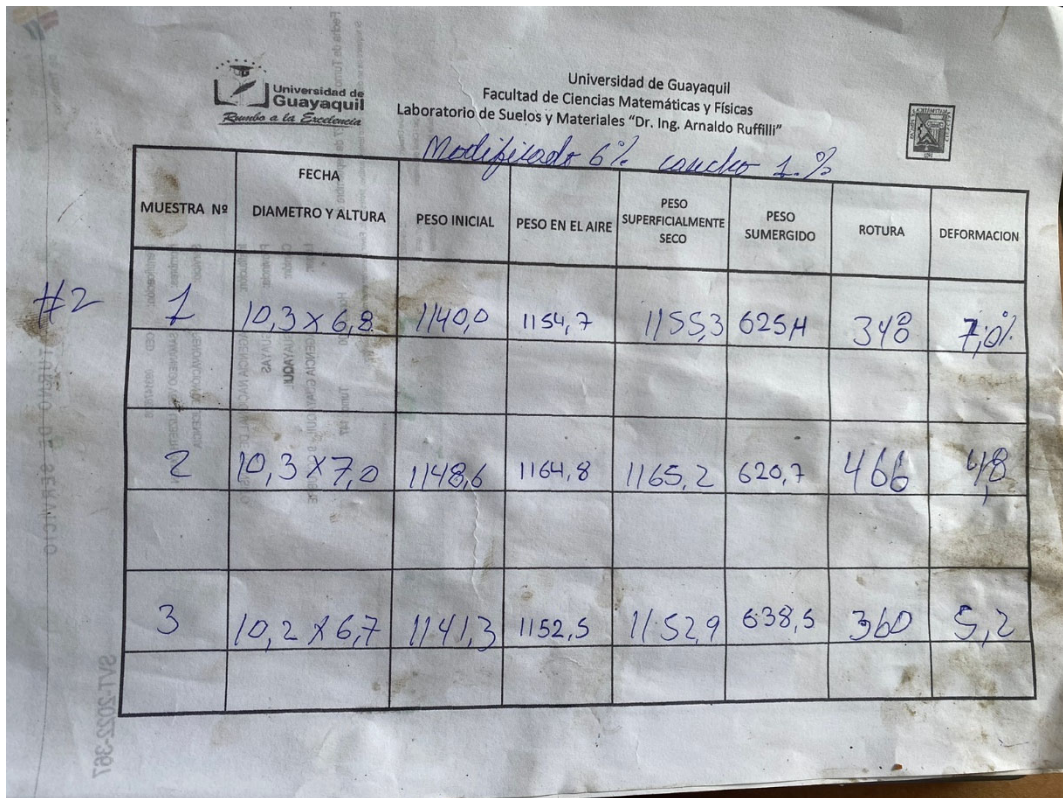 Universidad de
Guayaquil
Rumbo a la Excelencia
Universidad de Guayaquil
Facultad de Ciencias Matemáticas y Físicas
Laboratorio de Suelos y Materiales "Dr. Ing. Arnaldo Ruffilli"
Modifikado 6% caucho 1.%
MUESTRA Nº FECHA DIAMETRO Y ALTURA PESO INICIAL PESO EN EL AIRE PESO SUPERFICIALMENTE SECO PESO SUMERGIDO ROTURA DEFORMACION
#2 1 10,3 x 6,8 1140,0 1154,7 1155,3 625,4 348 7,0%
2 10,3 x 7,0 1148,6 1164,8 1165,2 620,7 466 4,8
3 10,2 x 6,7 1141,3 1152,5 1152,9 638,5 360 5,2
SVT-2022-367